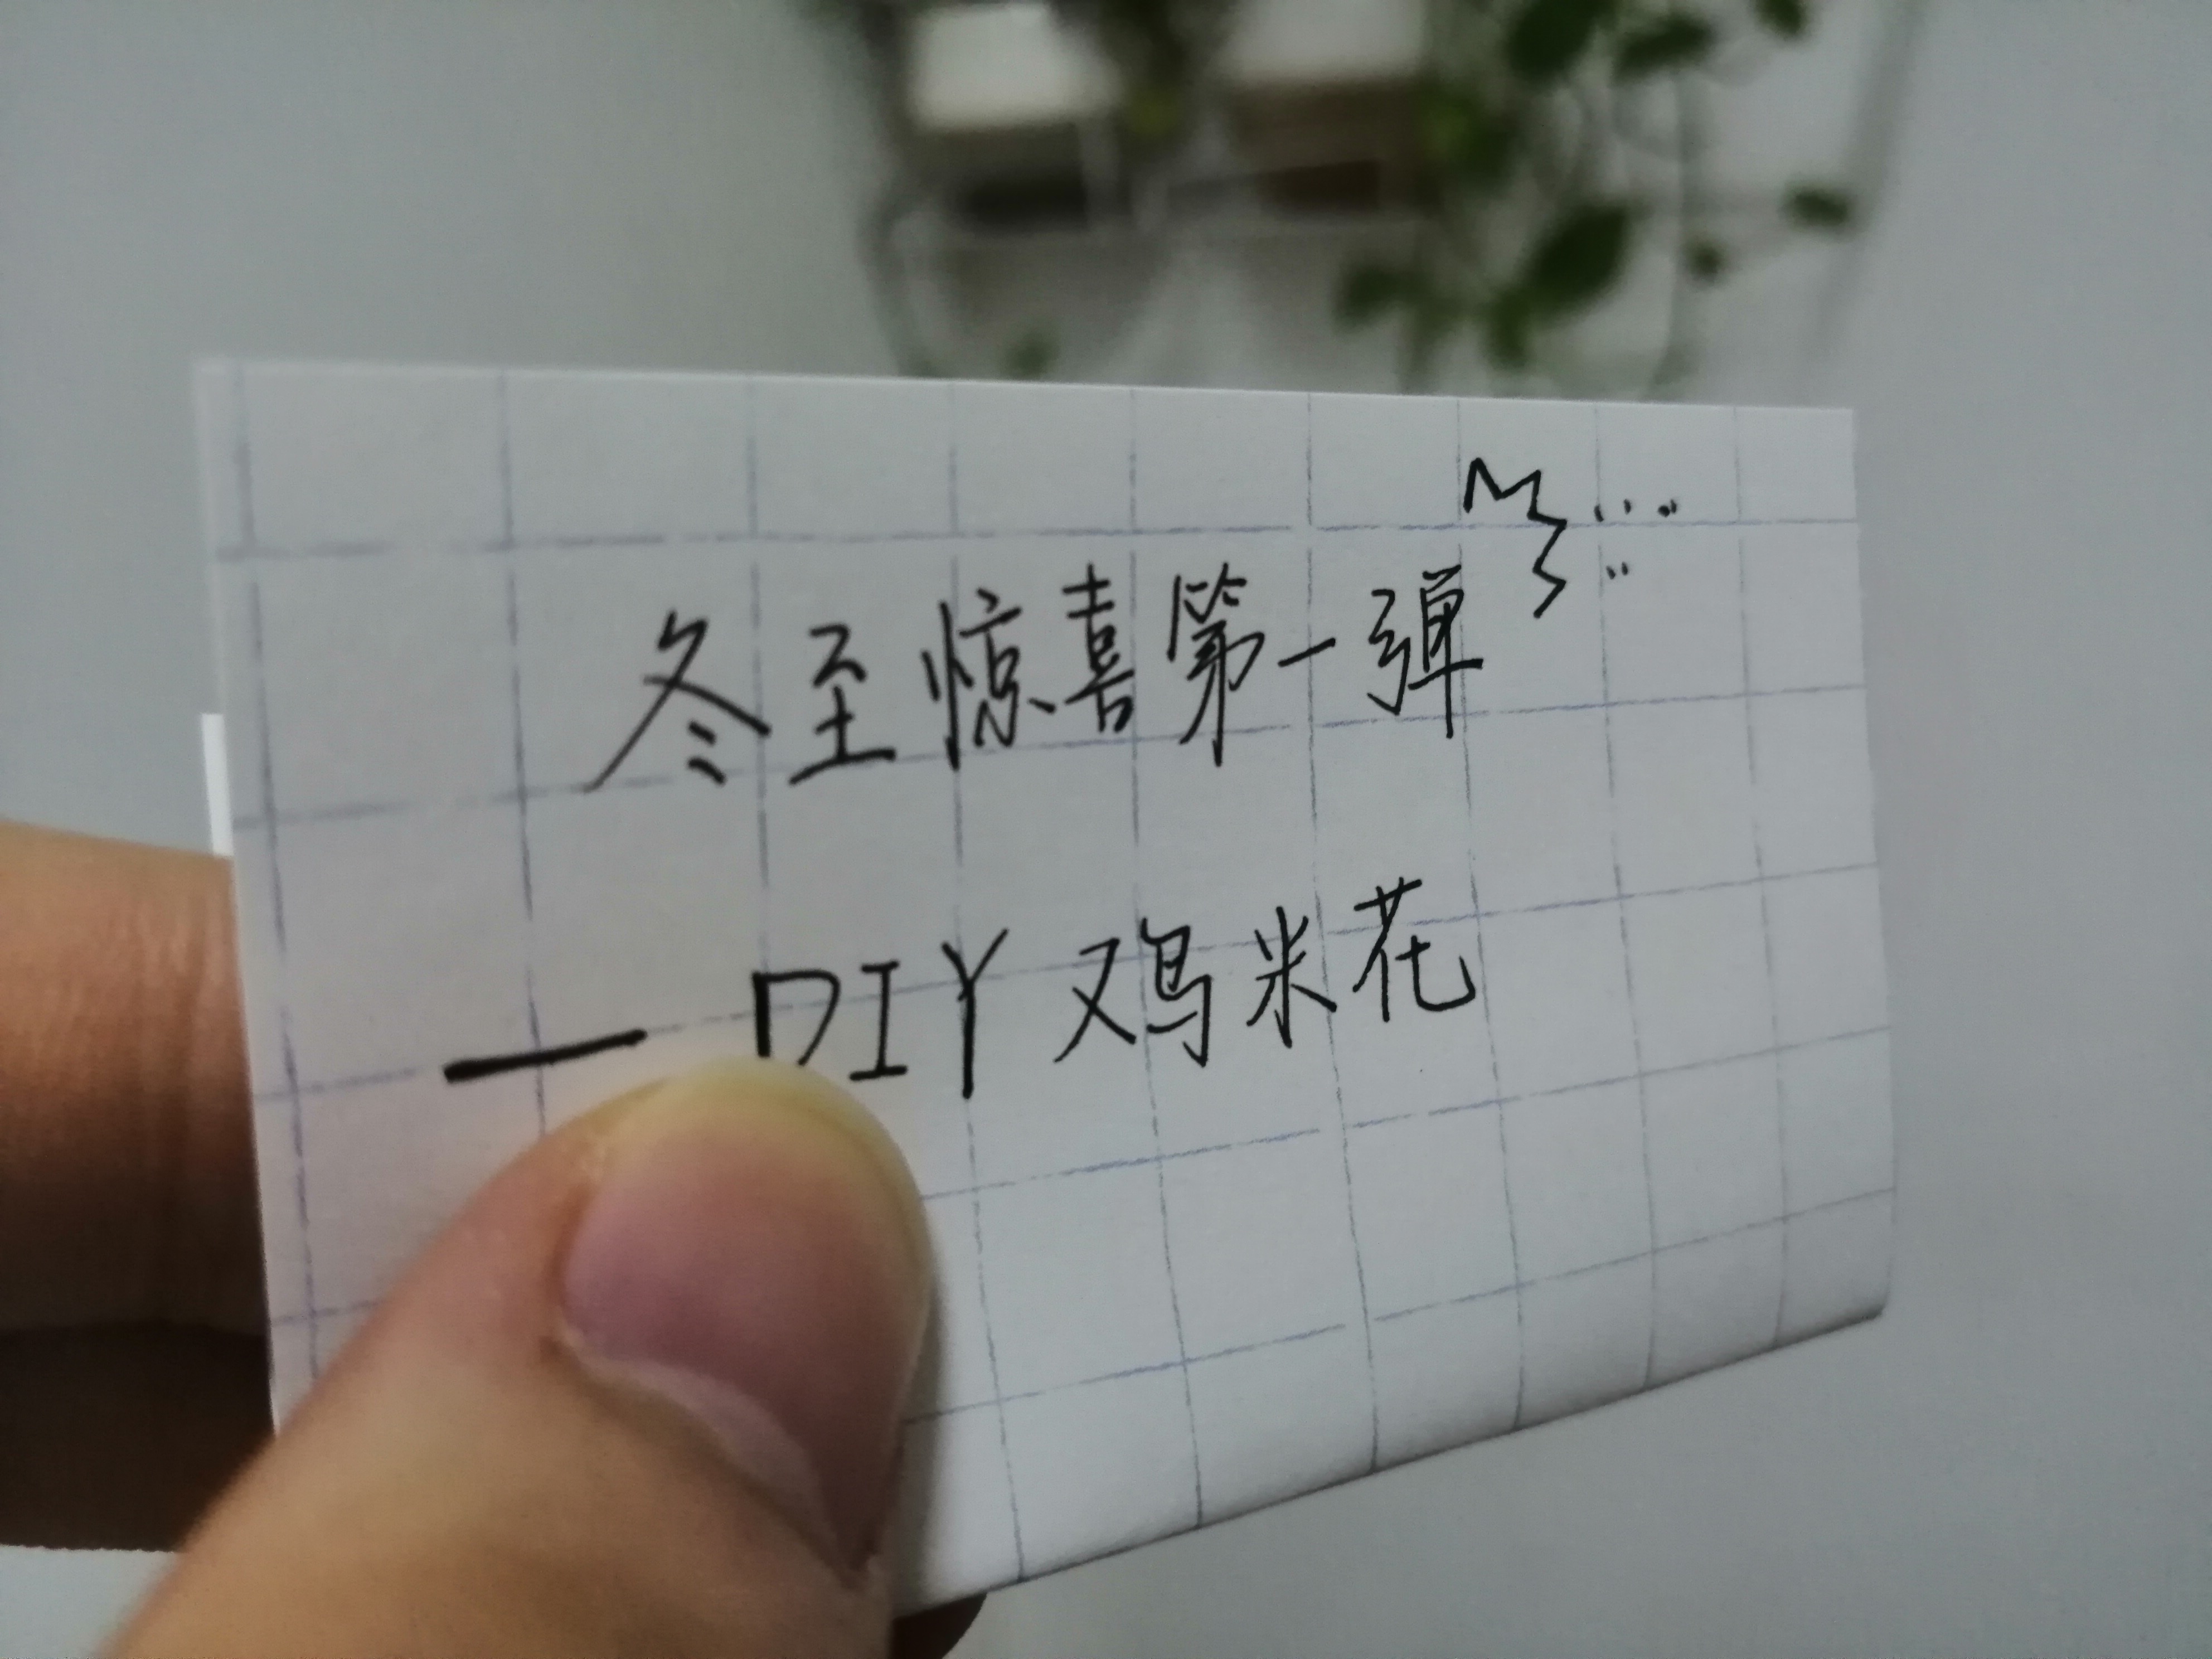 冬至惊喜第一弹
— DIY 鸡米花